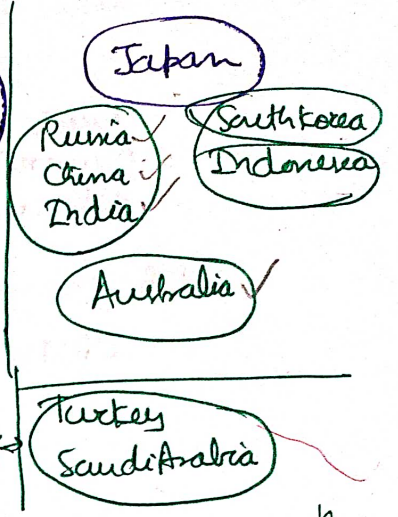 Japan
Russia
China
India
South Korea
Indonesia
Australia
Turkey
Saudi Arabia